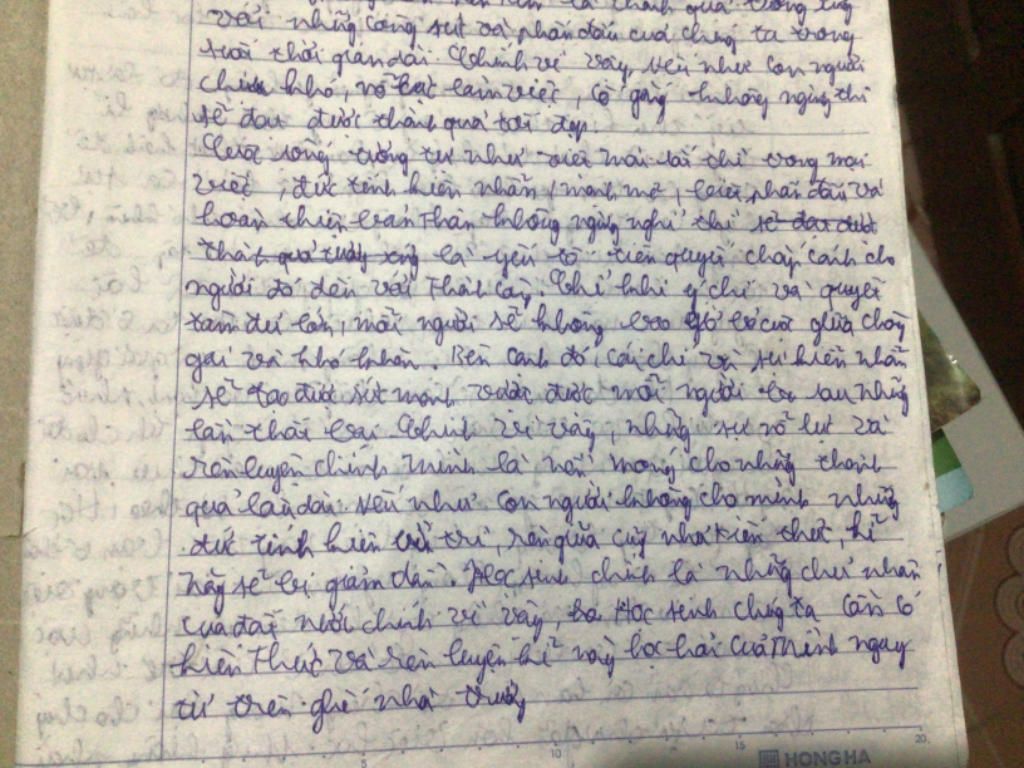 là thành quả tương ứng
với những công sức và phấn đấu của chúng ta trong
suốt thời gian dài. Chính vì vậy, nếu như con người
chịu khó, nỗ lực làm việc, cố gắng không ngừng thì
sẽ đạt được thành quả tốt đẹp.
Cuộc sống tương tự như việc mài sắt chỉ trong mọi
việc, đức tính kiên nhẫn, mạnh mẽ, biết phấn đấu và
hoàn thiện bản thân không ngừng nghỉ thì sẽ đạt được
thành quả tương xứng là yếu tố tiên quyết chắp cánh cho
người đó đến với thành công. Chỉ khi ý chí và quyết
tâm đủ lớn, mỗi người sẽ không bao giờ bỏ cuộc giữa chông
gai và khó khăn. Bên cạnh đó, cái chí và sự kiên nhẫn
sẽ tạo được sức mạnh vực được mỗi người sau những
lần thất bại. Chính vì vậy, những sự nỗ lực và
rèn luyện chính mình là nền móng cho những thành
quả lâu dài. Nếu như con người không cho mình những
đức tính kiên trì, rèn giũa cũng như kiến thức, kĩ
năng sẽ bị giảm dần. Học sinh chính là những chủ nhân
của đất nước chính vì vậy, học sinh chúng ta cần có
kiến thức và rèn luyện kĩ này học hỏi của mình ngay
từ trên ghế nhà trường
5 10 15 20
HONG HA